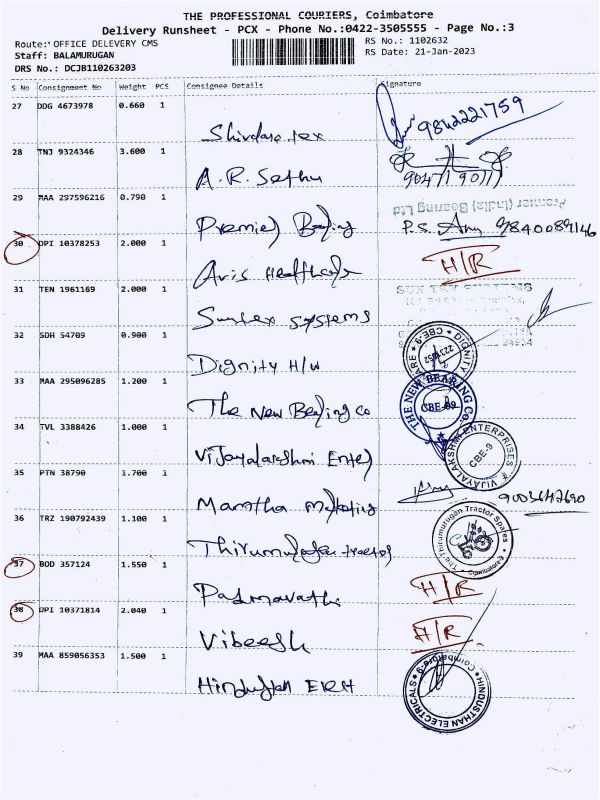 THE PROFESSIONAL COURIERS, Coimbatore
Delivery Runsheet - PCX - Phone No.:0422-3505555 - Page No.:3
Route:'OFFICE DELEVERY CMS
RS No.: 1102632
Staff: BALAMURUGAN
RS Date: 21-Jan-2023
DRS No.: DCJB110263203
S No Consignment No Weight PCS Consignee Details Signature
27 DDG 4673978 0.660 1
9842221759
28 TNJ 9324346 3.600 1
A.R. Sethu
29 MAA 297596216 0.790 1
Premier (India) Bearing Ltd
Premier Bearing P.S. 9840089146
30 DPI 10378253 2.000 1
Aris Healthcare H/R
31 TEN 1961169 2.000 1
Suntex Systems
32 SDH 54709 0.900 1
CBE-9 DIGNITY
Dignity H/W
33 MAA 295096285 1.200 1
THE NEW BEARING CO. CBE-09
The New Bearing Co
34 TVL 3388426 1.000 1
VIJAYALAKSHMI ENTERPRISES CBE-9
Vijayalakshmi Enter
35 PTN 38790 1.700 1
Marutha Marketing 9003642690
36 TRZ 190792439 1.100 1
The Thirumurugan Tractor Spares Coimbatore
Thirumurugan tractor
37 BOD 357124 1.550 1
Padmavathi H/R
38 DPI 10371814 2.040 1
Vibeesh H/R
39 MAA 859056353 1.500 1
HINDUSTHAN ELECTRICALS Coimbatore-9
Hindustan Elect